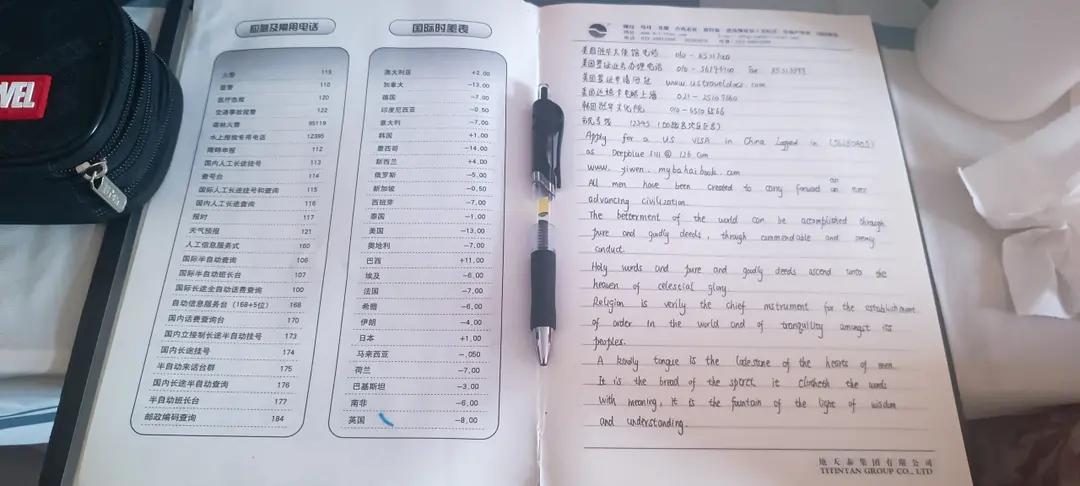 VEL
应急及常用电话
火警 119
匪警 110
医疗急救 120
交通事故报警 122
森林火警 95119
水上报警专用电话 12395
障碍申报 112
国内人工长途挂号 113
查号台 114
国际人工长途挂号和查询 115
国内人工长途查询 116
报时 117
天气预报 121
人工信息服务式 160
国际半自动查询 106
国际半自动班长台 107
国际长途全自动话费查询 100
自动信息服务台（168+5位） 168
国内话费查询台 170
国内立接制长途半自动挂号 173
国内长途挂号 174
半自动来话台群 175
国内长途半自动查询 176
半自动班长台 177
邮政编码查询 184
国际时差表
澳大利亚 +2.00
加拿大 -13.00
德国 -7.00
印度尼西亚 -0.50
意大利 -7.00
韩国 +1.00
墨西哥 -14.00
新西兰 +4.00
俄罗斯 -5.00
新加坡 -0.50
西班牙 -7.00
泰国 -1.00
美国 -13.00
奥地利 -7.00
巴西 +11.00
埃及 -6.00
法国 -7.00
希腊 -6.00
伊朗 -4.00
日本 +1.00
马来西亚 -.050
荷兰 -7.00
巴基斯坦 -3.00
南非 -6.00
英国 -8.00
美国驻华大使馆电话 010-
美国签证业务办理电话 010-56794700 Fax
美国签证申请网址 www.ustraveldocs.com
上海 021-
韩国驻华文化院 010-
12345
Apply for a US VISA in China Logged in
as Deepblue @ 126 com
www. yiwen. mybahaibook. com
All men have been created to carry forward an ever
advancing civilization.
The betterment of the world can be accomplished through
pure and goodly deeds, through commendable and seemly
conduct.
Holy words and pure and goodly deeds ascend unto the
heaven of celestial glory.
Religion is verily the chief instrument for the establishment
of order in the world and of tranquility amongst its
peoples.
A kindly tongue is the lodestone of the hearts of men.
It is the bread of the spirit, it clotheth the words
with meaning, it is the fountain of the light of wisdom
and understanding.
地天泰集团有限公司
TITINTAN GROUP CO., LTD